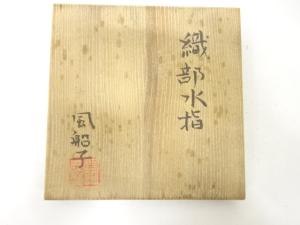 織部水指
風船子